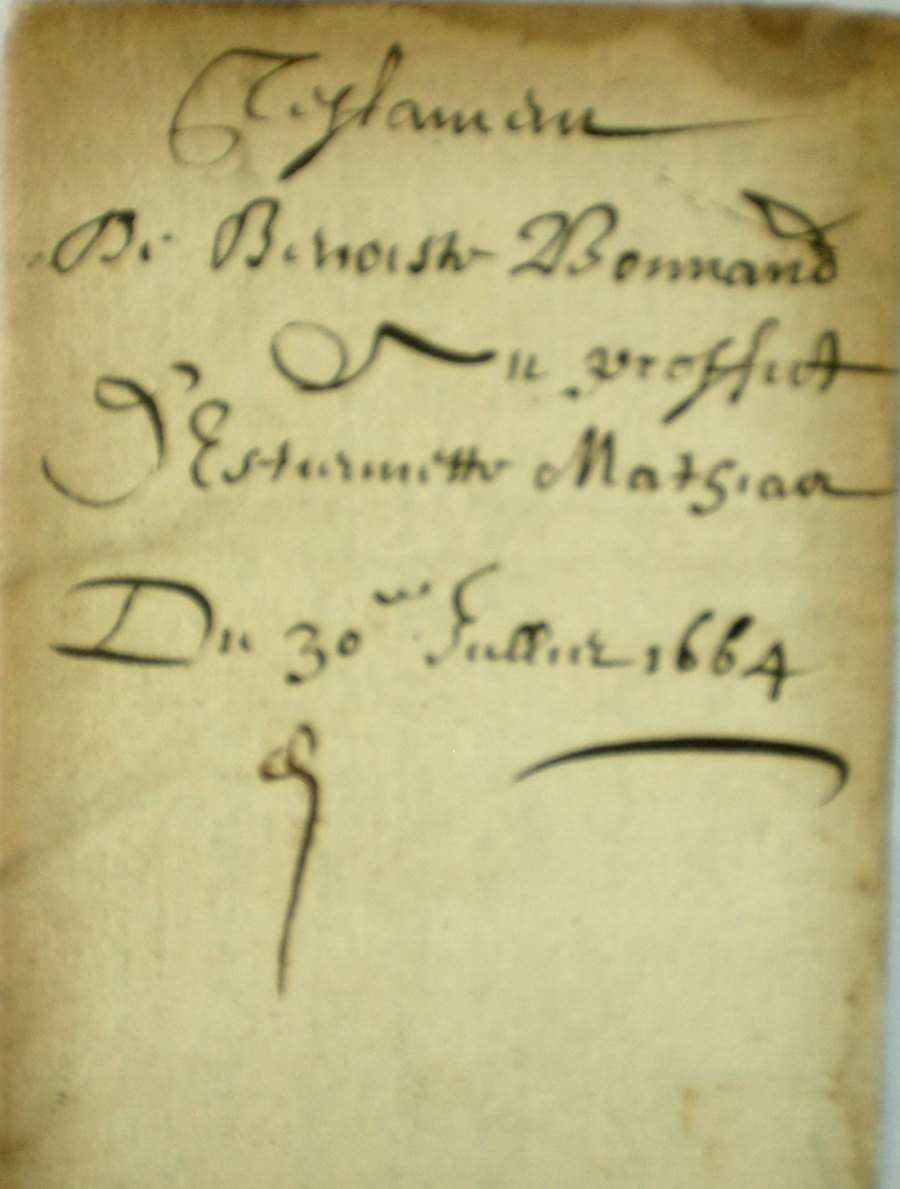 Testamen
De Benoiste Bonnand
Au proffict
D'Estiennette Mathiaa
Du 30me Juillet 1664